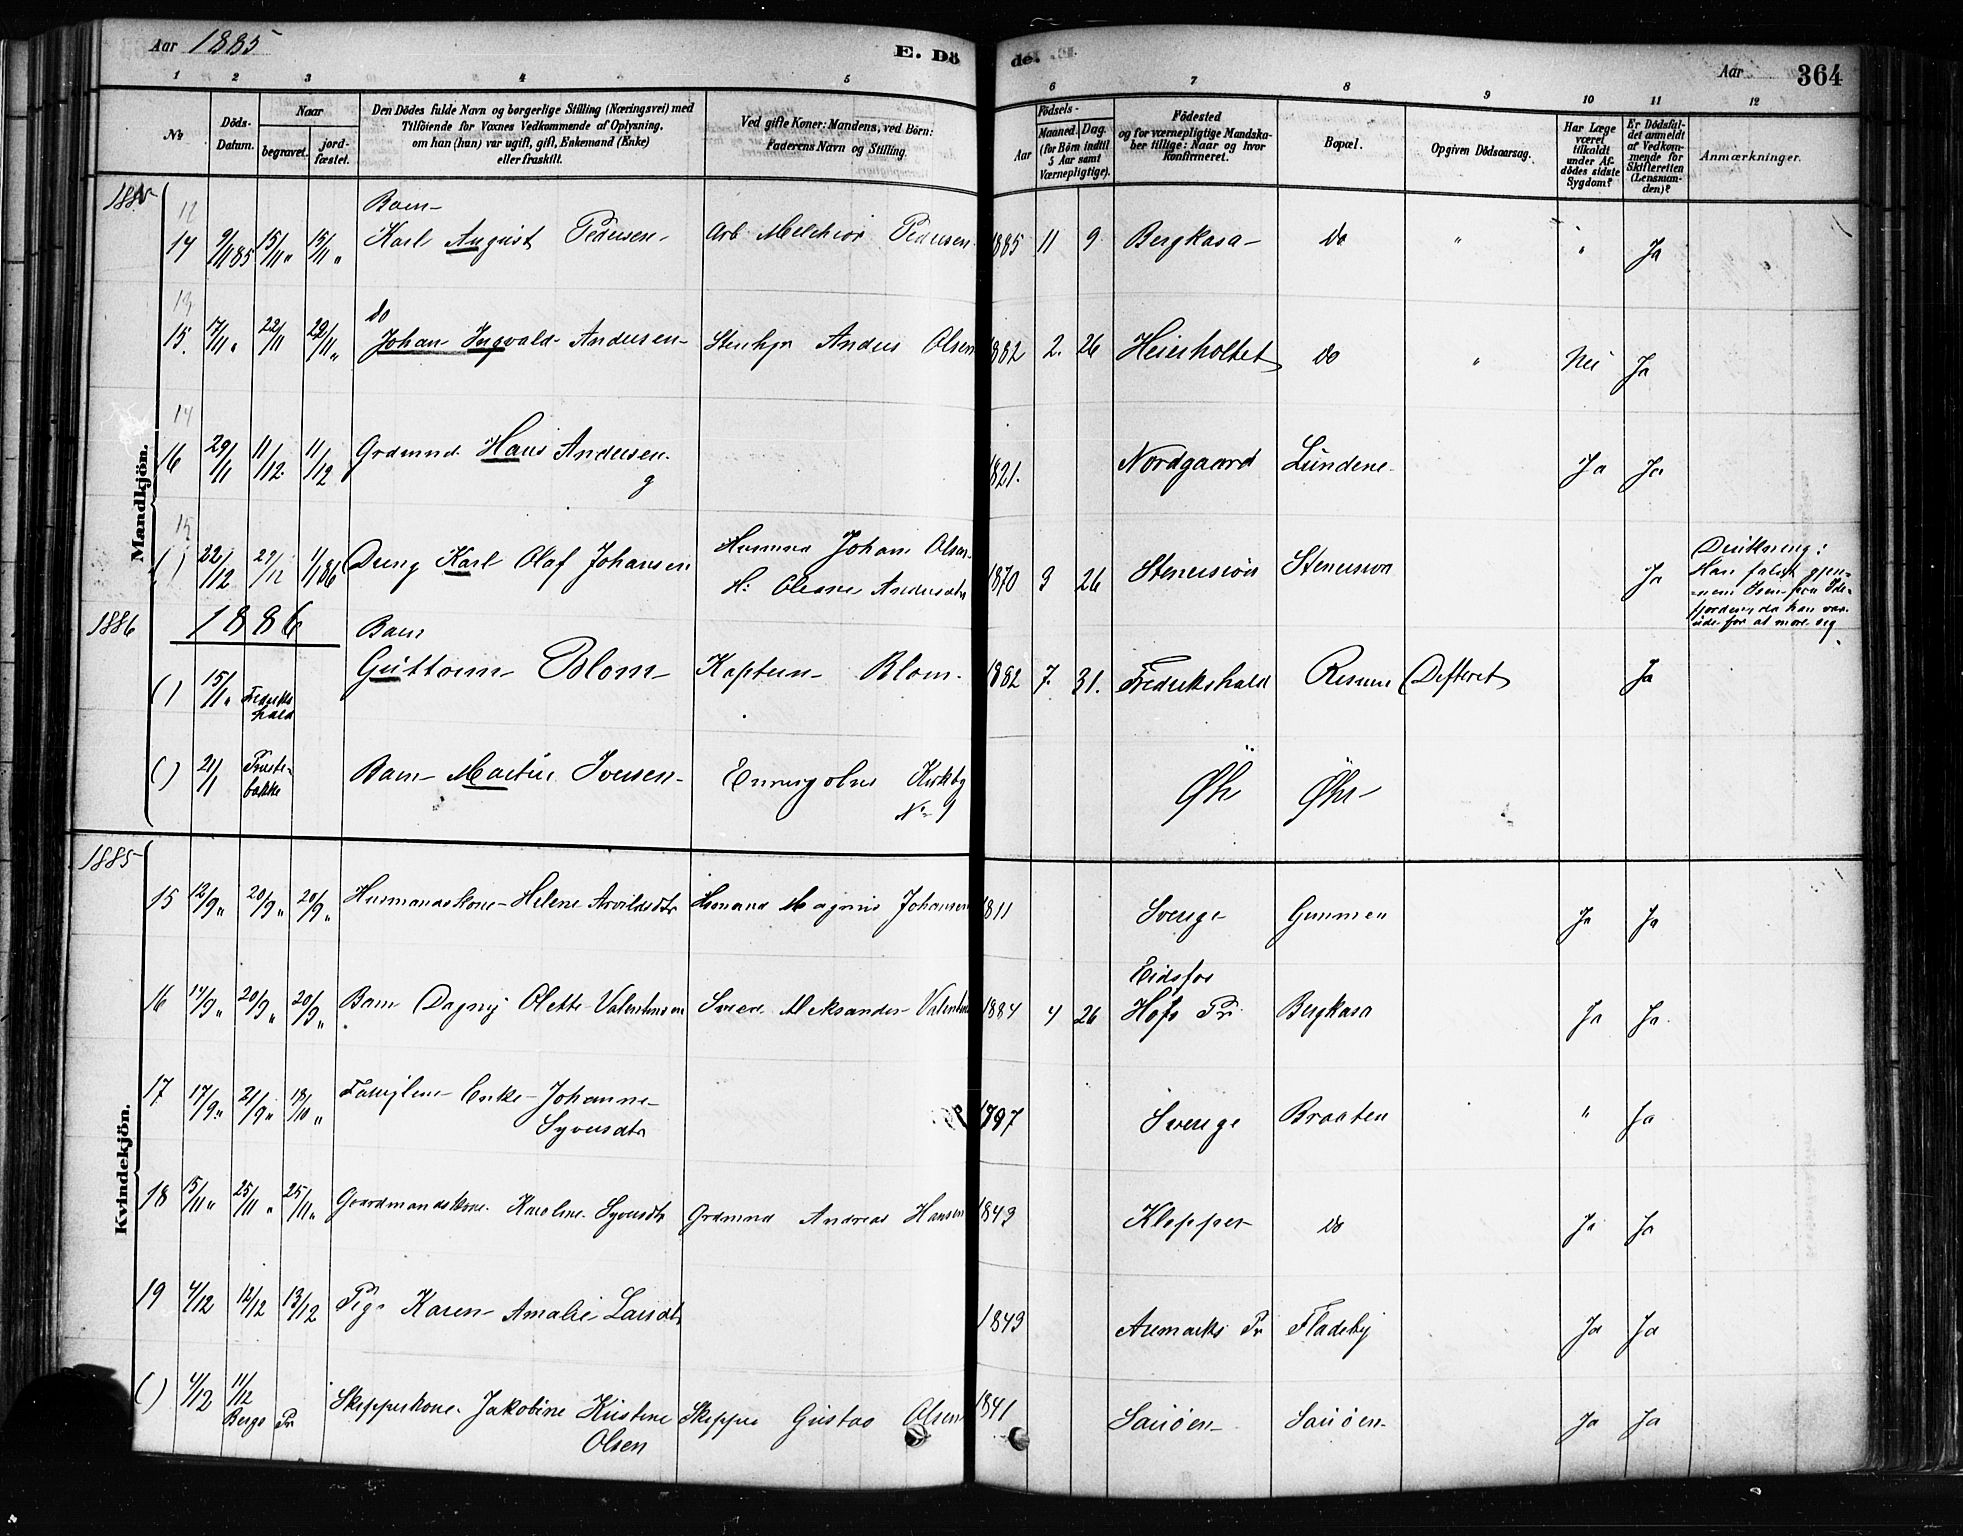 Aar 1885
E. Dö
de.
Aar 364
1 2 3 4 5 6 7 8 9 10 11 12
No
Döds-
Datum.
Naar
begravet.
jord-
fæstet.
Den Dödes fulde Navn og borgerlige Stilling (Næringsvei) med
Tilföiende for Voxnes Vedkommende af Oplysning,
om han (hun) var ugift, gift, Enkemand (Enke)
eller fraskilt.
Ved gifte Koner: Mandens, ved Börn:
Faderens Navn og Stilling.
Födsels-
Aar
Maaned.
Dag.
(for Börn indtil
5 Aar samt
Værnepligtige).
Födested
og for værnepligtige Mandska-
ber tillige: Naar og hvor
konfirmeret.
Bopæl.
Opgiven Dödsaarsag.
Har Læge
været
tilkaldt
under Af-
dödes sidste
Sygdom?
Er Dödsfal-
det anmeldt
af Vedkom-
mende for
Skifteretten
(Lensman-
den)?
Anmærkninger.
Mandkjön.
1885
12
Barn
14 9/11 85 15/11 " 15/11 " Karl August Pedersen Arb Melchior Pedersen 1885 11 9 Bergkasa do " " Ja
13
do
15. 17/11 " 22/11 22/11 " Johan Ingvald Andersen Stenhgr Anders Olsen 1882 2. 26 Heierholtet do " Nei Ja
14
16 29/11 11/12 11/12 Grdmnd Hans Andersen g 1821. Nordgaard Lundene Ja Ja
15
( ) 22/12 29/12 1/1 86 Dreng Karl Olaf Johansen Husmnd Johan Olsen
H: Oleane Andersdtr 1870 9 26 Ja
Drukning:
Han faldt gjen-
nem Isen paa Ide-
fjorden, da han var
ude for at more sig
1886
1886
Barn
( ) 15/1 " Fredriks
hald Guttorm Blom Kaptein Blom 1882 7. 31. Fredrikshald Difterit Ja
( ) 21/1 Barn Martin Iversen No 9
Kvindekjön.
1885
15 12/9 " 20/9 " 20/9 " Husmandskone Helene Arvildsdtr Husmand Magnus Johansen 1811 Sverige Ja Ja
Eidsfos
16 14/9 " 20/9 " 20/9 " Barn Dagny Olette Valentinsen Aleksander 1884 4 26 Hofs Pr Bergkasa Ja Ja
17 17/9 " 21/9 " 18/10 " Enke Johanne
Syversdtr 1797 Sverige Braaten " Ja
18 15/11 " 25/11 " 25/11 " Gaardmandskone Karoline Syversdtr Grdmnd Andreas Hansen 1843 Klepper do Ja Ja
19 4/12 12/12 13/12 Pige Karen Amalie Larsdtr 1843 Aremarks Pr Fladeby Ja Ja
( ) 4/12 11/12
Bergs Pr Skipperkone Jakobine Kristine
Olsen Skipper Gustav Olsen 1841 Sauöen Sauöen Ja Ja